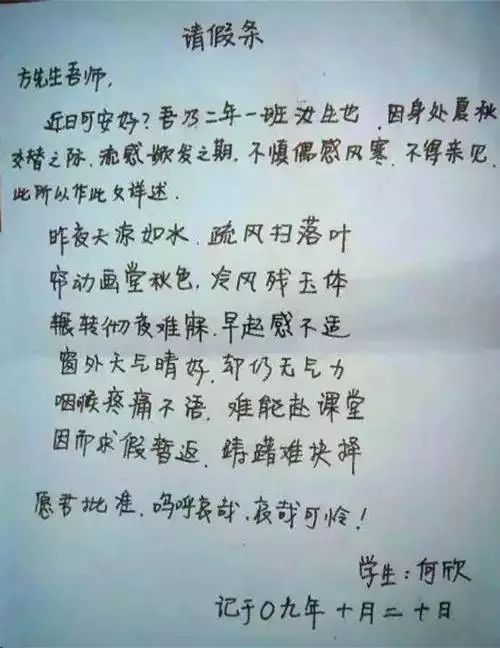 请假条
方先生吾师,
近日可安好?吾乃二年一班汝生也.因身处夏秋
交替之际.流感欲发之期.不慎偶感风寒.不得亲见.
此所以作此文详述.
昨夜天凉如水.疏风扫落叶
帘动画堂秋色.冷风残玉体
辗转彻夜难寐.早起感不适
窗外天气晴好.却仍无气力
咽喉疼痛不语.难能赴课堂
因而求假暂返.踌躇难抉择
愿君批准.呜呼哀哉.哀哉可怜!
学生:何欣
记于〇九年十月二十日